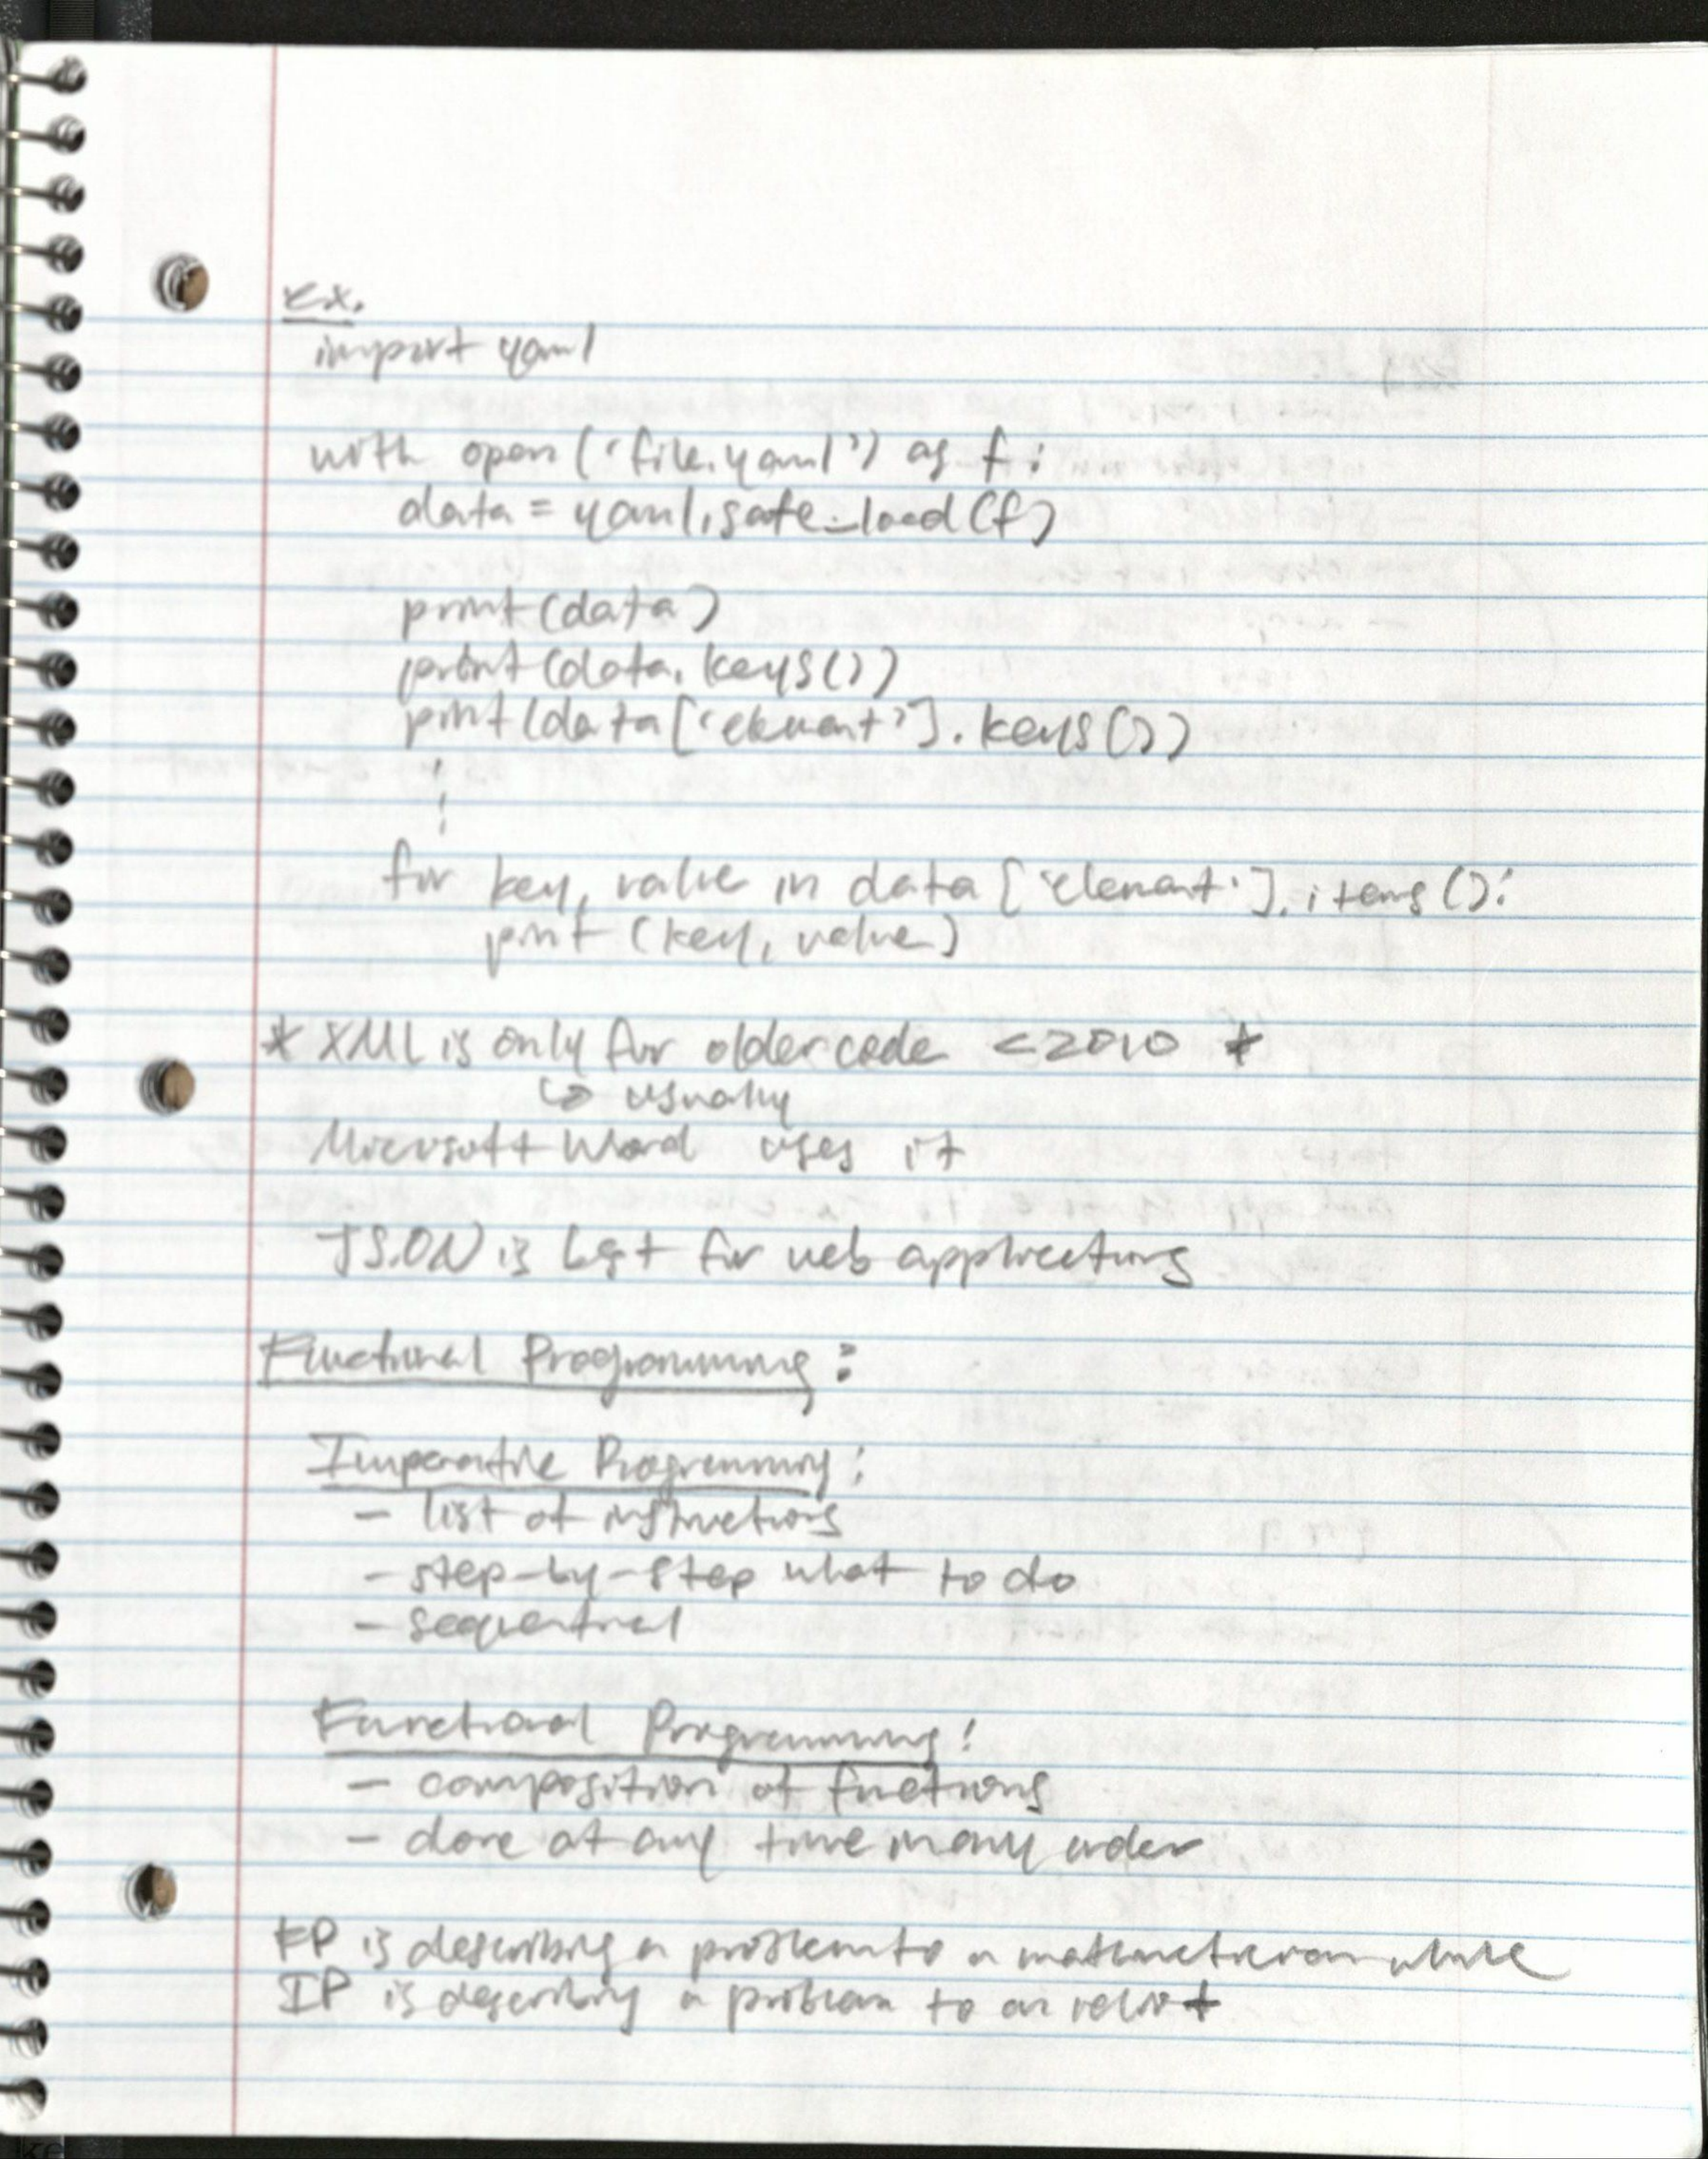 Ex.
import yaml
with open ('file.yaml') as f:
data = yaml.safe_load(f)
print (data)
print (data.keys())
print (data['element'].keys())
for key, value in data ['element'].items():
print (key, value)
* XML is only for older code <2010 *
↳ usually
Microsoft Word uses it
JSON is best for web applications
Functional Programming:
Imperative Programming:
- list of instructions
- step-by-step what to do
- sequential
Functional Programming:
- composition of functions
- done at any time in any order
FP is describing a problem to a mathematician while
IP is describing a problem to an